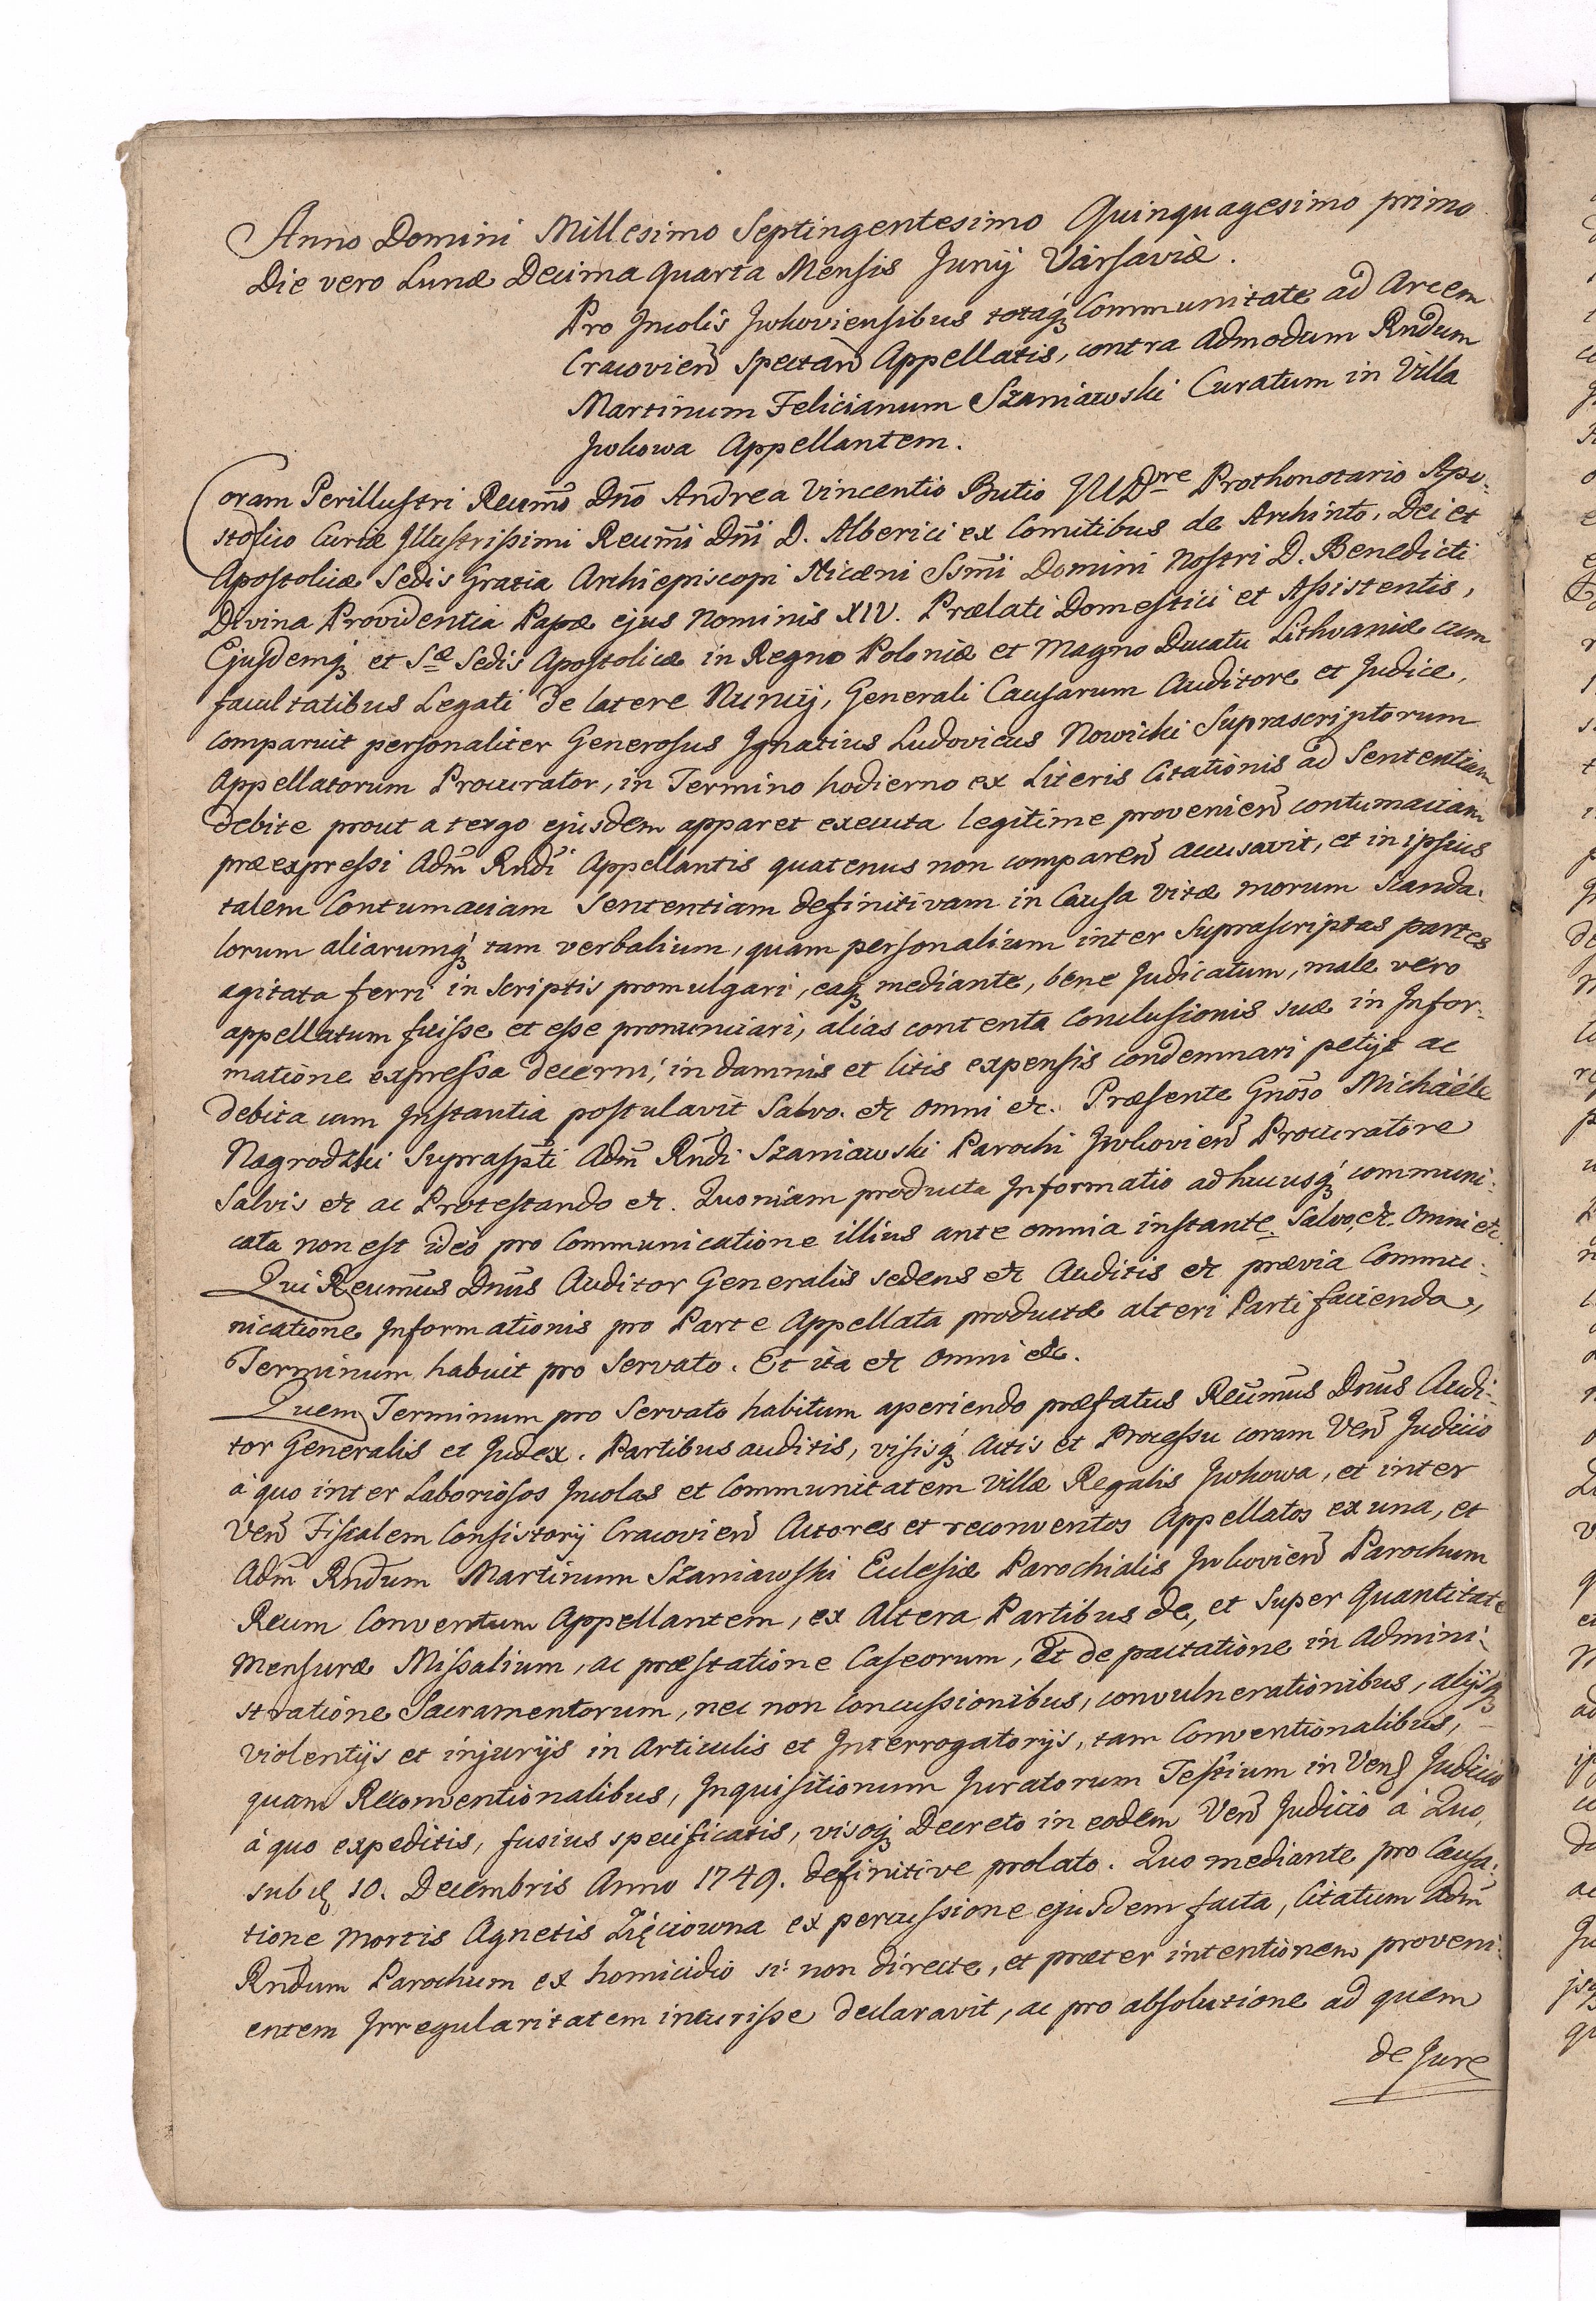 Anno Domini Millesimo Septingentesimo Quinquagesimo primo
Die vero Lunæ Decima quarta Mensis Junij Varsaviæ.
Pro Incolis Jwkoviensibus totaq́ꝫ Communitate ad Arcem
Cracovien̄ spectan̄ Appellatis, contra Admodum Rndum
Martinum Felicianum Szaniawski Curatum in Villa
Jwkowa Appellantem.
Coram Perillustri Reūmo Dn̄o Andrea Vincentio Butio JUDre Prothonotario Apo-
stolico Curiæ Jllustrissimi Reūmi Dn̄i D. Alberici ex Comitibus de Archinto, Dei et
Apostolicæ Sedis Gratia Archiepiscopi Nicæni Ssm̄i Domini Nostri D. Benedicti
Divina Providentia Papæ ejus Nominis XIV. Prælati Domestici et Assistentis,
Ejusdemq́ꝫ et Sæ Sedis Apostolicæ in Regno Poloniæ et Magno Ducatu Lithvaniæ cum
facultatibus Legati de latere Nuncij, Generali Causarum Auditore et Judice,
comparuit personaliter Generosus Jgnatius Ludovicus Nowicki Suprascriptorum
Appellatorum Procurator, in Termino hodierno ex Literis Citationis ad Sententiam
debite prout a tergo ejusdem apparet executa legitime provenien̄ contumaciam
præexpressi Adm̄ Rnd̄i Appellantis quatenus non comparen̄ accusavit, et in ipsius
talem Contumaciam Sententiam definitivam in Causa vitæ morum scanda-
lorum aliarumq́ꝫ tam verbalium, quam personalium inter Suprascriptas partes
agitata ferri in scriptis promulgari, eaqꝫ mediante, bene Judicatum, male vero
appellatum fuisse et esse pronunciari, alias contenta Conclusionis suæ in Jnfor-
matione expressa decerni, in damnis et litis expensis condemnari petijt ac
debita cum Jnstantia postulavit Salvo. etc omni etc. Præsente Gnōso Michaële
Nagrodzki Suprasp̄ti Adm̄ Rn̄di Szaniawski Parochi Jwkovien̄ Procuratore
Salvis etc ac Protestando etc. Quoniam producta Jnformatio adhucusq́ꝫ communi-
cata non est ideo pro Communicatione illius ante omnia instante. Salvo, etc. Omni etc.
Qui Reūmus Dnūs Auditor Generalis sedens etc Auditis etc prævia Commu-
nicatione Jnformationis pro Parte Appellata productæ alteri Parti facienda,
Terminum habuit pro Servato. Et ita etc omni etc.
Quem Terminum pro Servato habitum aperiendo præfatus Reūmus Dnūs Audi-
tor Generalis et Judex. Partibus auditis, visisq́ꝫ Actis et Processu coram Ven̄ Judicio
à quo inter Laboriosos Jncolas et Communitatem Villæ Regalis Jwkowa, et inter
Ven̄ Fiscalem Consistorij Cracovien̄ Actores et reconventos Appellatos ex una, et
Adm̄ Rndum Martinum Szaniawski Ecclesiæ Parochialis Jwkovien̄ Parochum
Reum Conventum Appellantem, ex Altera Partibus de, et Super Quantitate
Mensuræ Missalium, ac præstatione Caseorum, Et depactatione in Admini-
stratione Sacramentorum, nec non Concussionibus, convulnerationibus, alijsqꝫ
violentijs et injurijs in Articulis et Jnterrogatorijs, tam Conventionalibus,
quam Reconventionalibus, Jnquisitionum Juratorum Testium in Ven̄ Judicio
à quo expeditis, fusius specificatis, visoqꝫ Decreto in eodem Ven̄ Judicio à Quo,
sub 10. Decembris Anno 1749. definitive prolato. Quo mediante pro Causa-
tione Mortis Agnetis Zięciowna ex percussione ejusdem facta, Citatum Adm̄
Rndum Parochum ex homicidio si non directe, et præter intentionem proveni-
entem Jrregularitatem incurisse declaravit, ac pro absolutione ad quem
de Jure